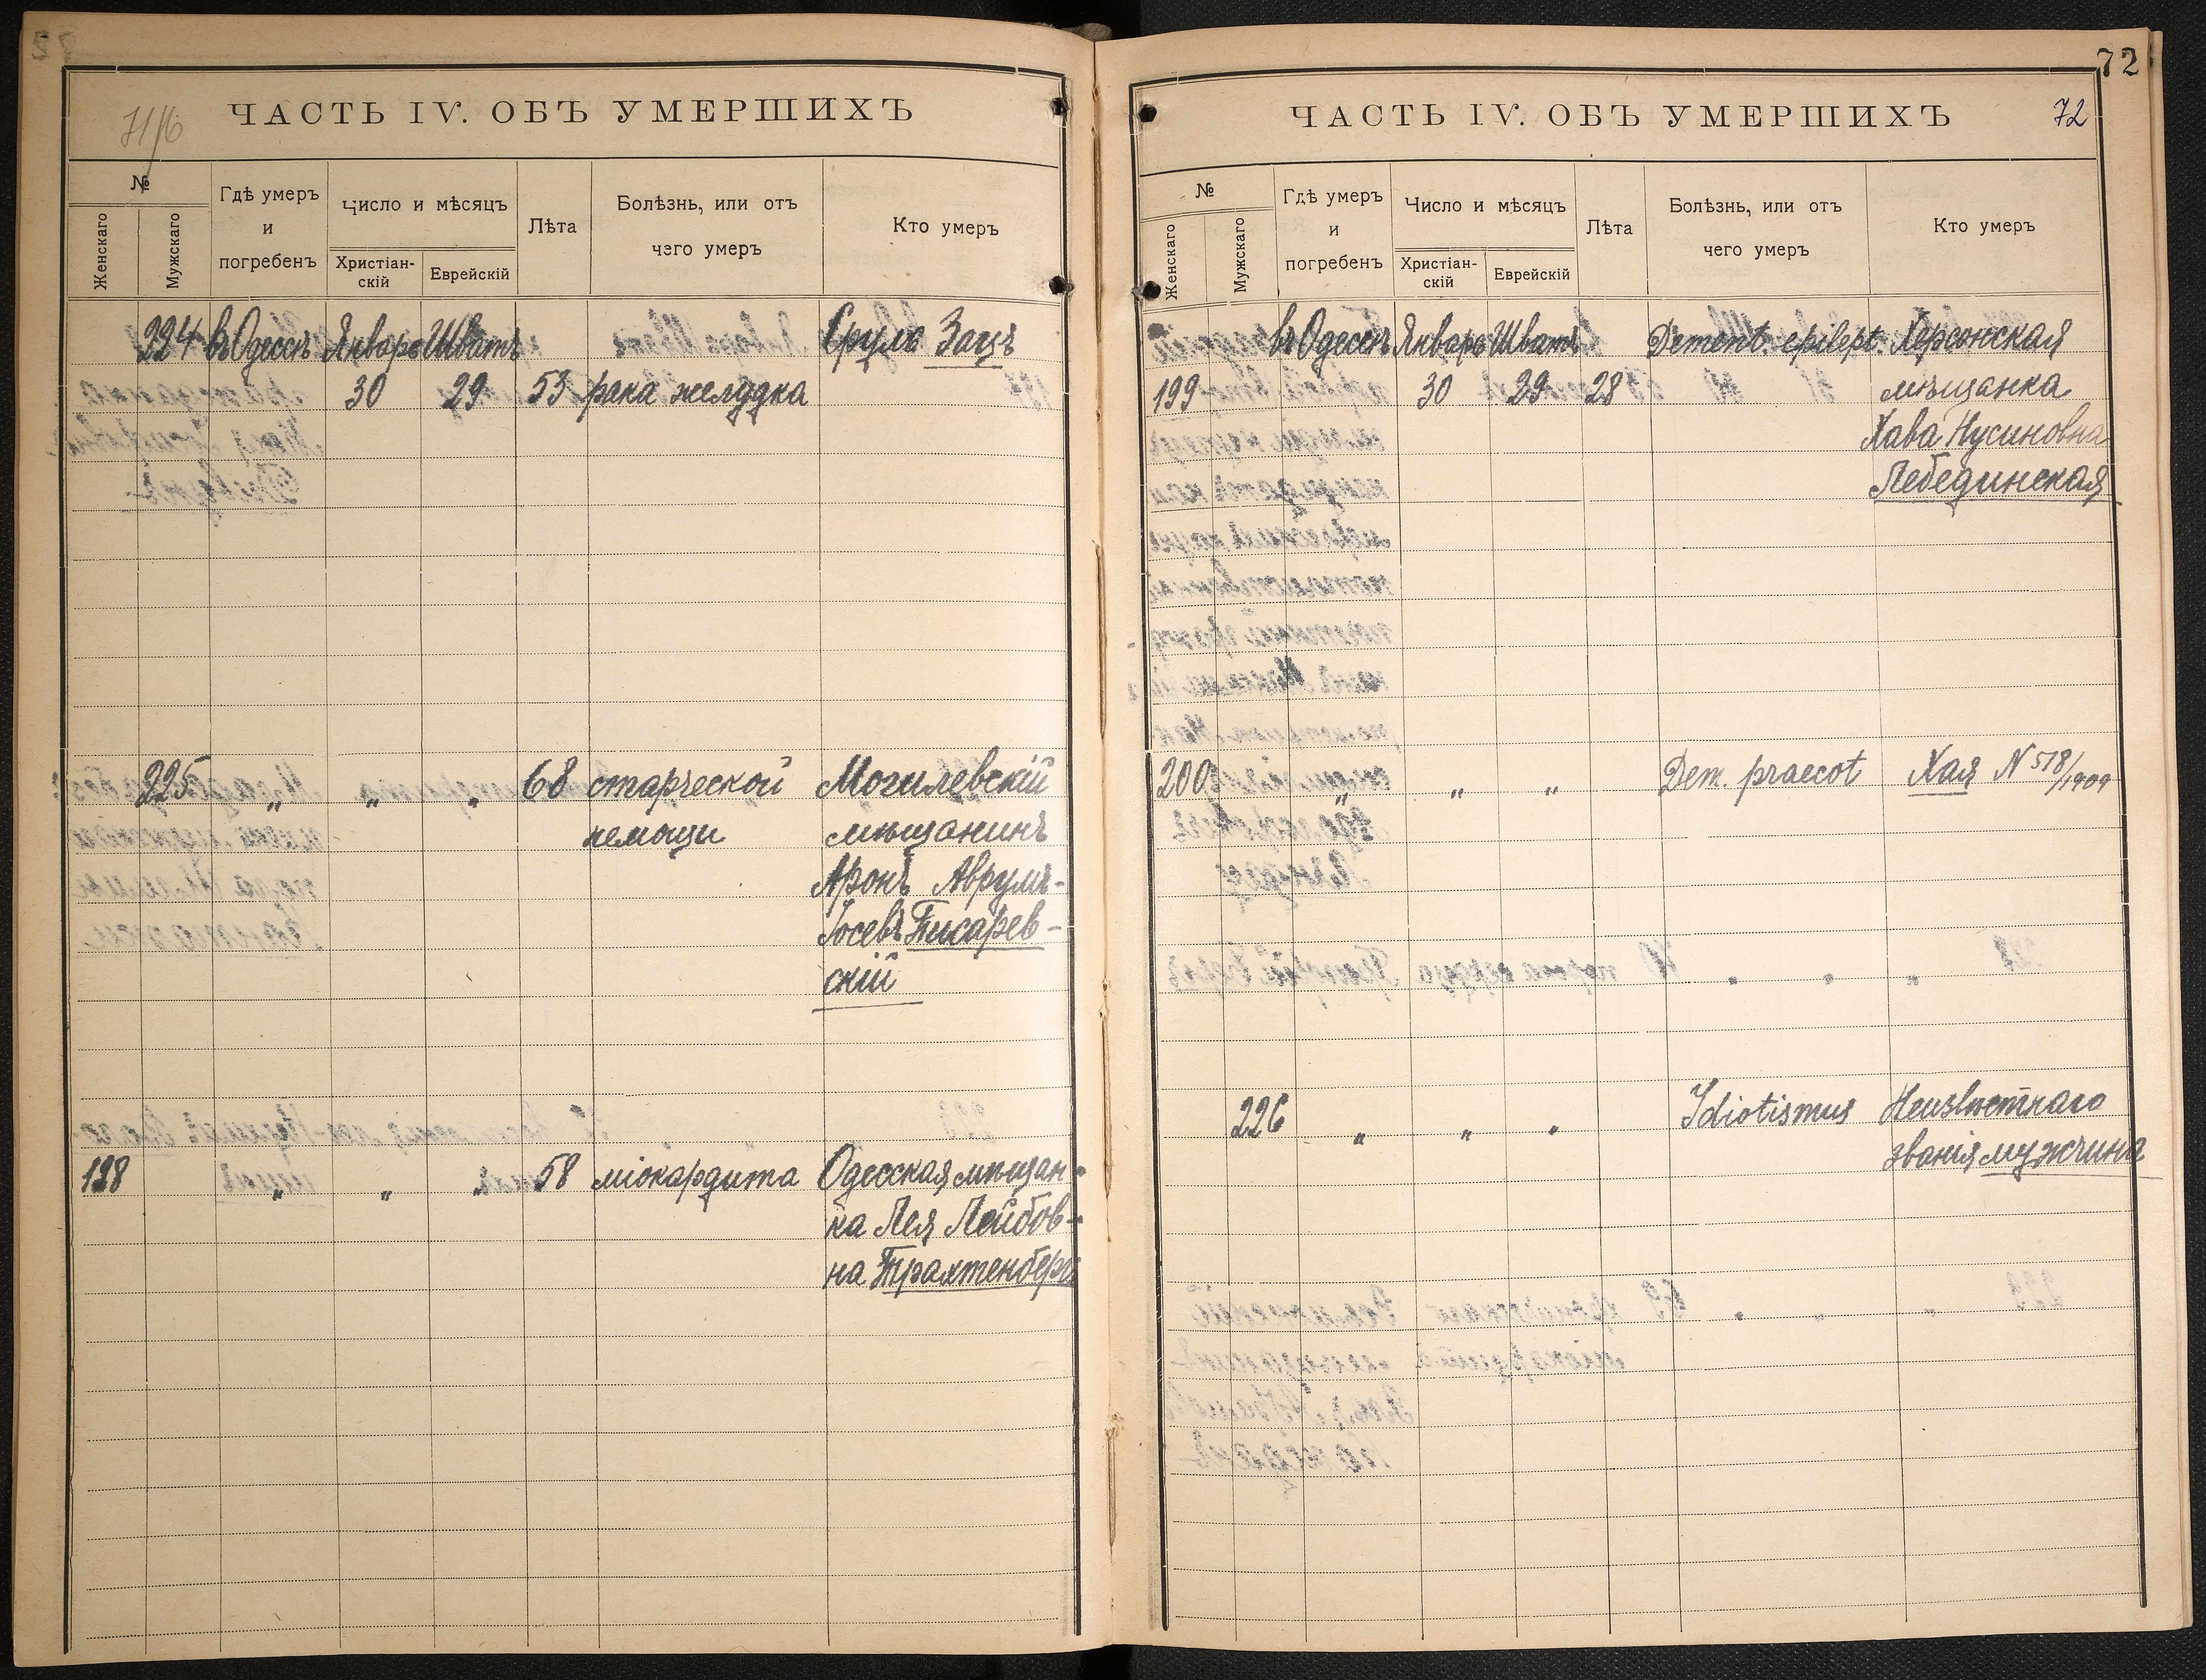 71/б
ЧАСТЬ IV. ОБЪ УМЕРШИХЪ
№
Женскаго
Мужскаго
Гдѣ умеръ
и
погребенъ
Число и мѣсяцъ
Христіан-
скій
Еврейскій
Лѣта
Болѣзнь, или отъ
чего умеръ
Кто умеръ
224 въ Одессѣ Январь Шватъ Сруль Зацъ
30 29 53 рака желудка
225 " " " 68 старческой Могилевскій
немощи мѣщанинъ
Аронъ Аврумъ-
Іосевъ Писарев-
скій
198 " " " 58 міокардита Одесская мѣщан-
ка Лея Лейбов-
на Трахтенбергъ
72
ЧАСТЬ IV. ОБЪ УМЕРШИХЪ 72
№
Женскаго
Мужскаго
Гдѣ умеръ
и
погребенъ
Число и мѣсяцъ
Христіан-
скій
Еврейскій
Лѣта
Болѣзнь, или отъ
чего умеръ
Кто умеръ
въ Одессѣ Январь Шватъ Dement. epilept. Херсонская
199 30 29 28 мѣщанка
Хава Нусиновна
Лебединская
200 " " " Dem. praecot Хая N 518/1909
226 " " " Idiotismus Неизвѣстнаго
званія мужчина